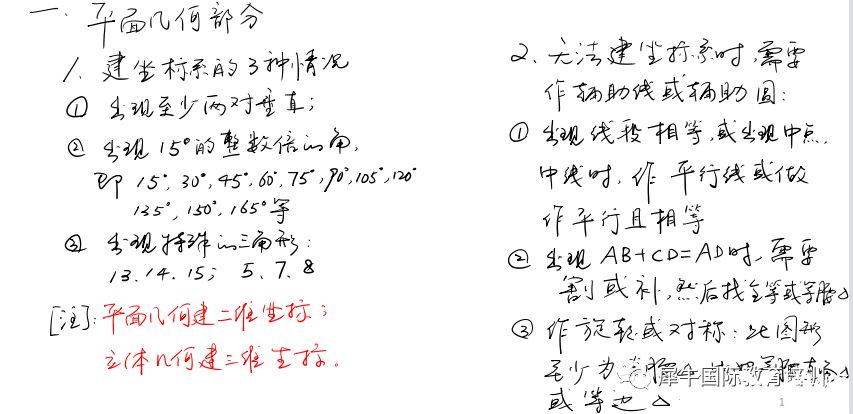 一、平面几何部分
1、建坐标系的3种情况
① 出现至少两对垂直；
② 出现15°的整数倍的角，
即 15°,30°,45°,60°,75°,90°,105°,120°
135°,150°,165°等
③ 出现特殊的三角形：
13.14.15； 5、7、8
[注]：平面几何建二维坐标；
立体几何建三维坐标。
2、无法建坐标系时,需要
作辅助线或辅助圆：
① 出现线段相等,或出现中点,
中线时，作平行线或做
作平行且相等
② 出现 AB+CD=AD时,需要
割或补,然后找全等或等腰△
③ 作旋转或对称：此图形
至少为等腰
或等边△
犀牛国际教育
1